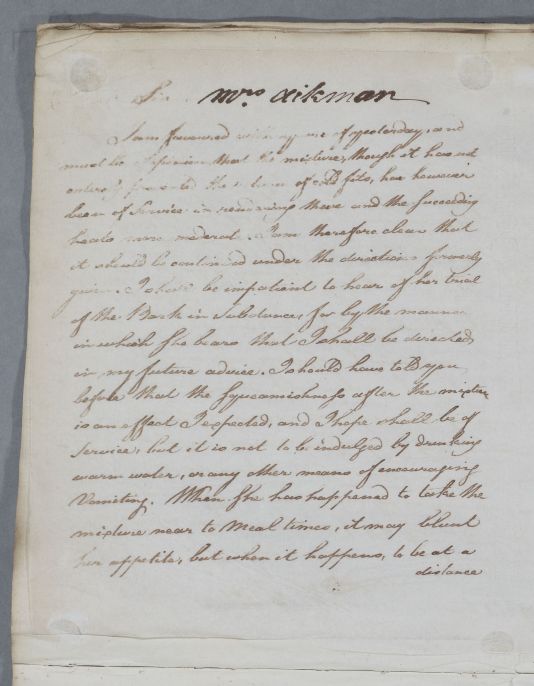 Sir Mrs Aikman
I am favoured with yours of yesterday, and
must be of opinion that the mixture, though it has not
entirely prevented the return of cold fits, has however
been of Service in rendering these and the succeeding
heats more moderat. I am therefore clear that
it should be continued under the directions formerly
given. I shall be impatient to hear of her trial
of the Bark in Substance, for by the manner
in which She bears that I shall be directed
in my future advice. I should have told you
before that the Squeamishness after the mixture
is an effect I expected, and I hope shall be of
Service, but it is not to be indulged by drinking
warm water, or any other means of encouraging
Vomiting. When She has happened to take the
mixture near to Meal times, it may blunt
her appetite, but when it happens, to be at a
distance